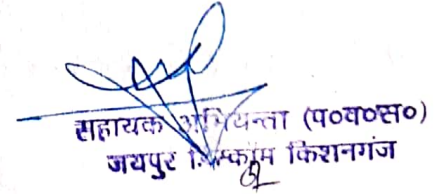 सहायक अभियन्ता (प०व०स०)
जयपुर डिस्कॉम किशनगंज